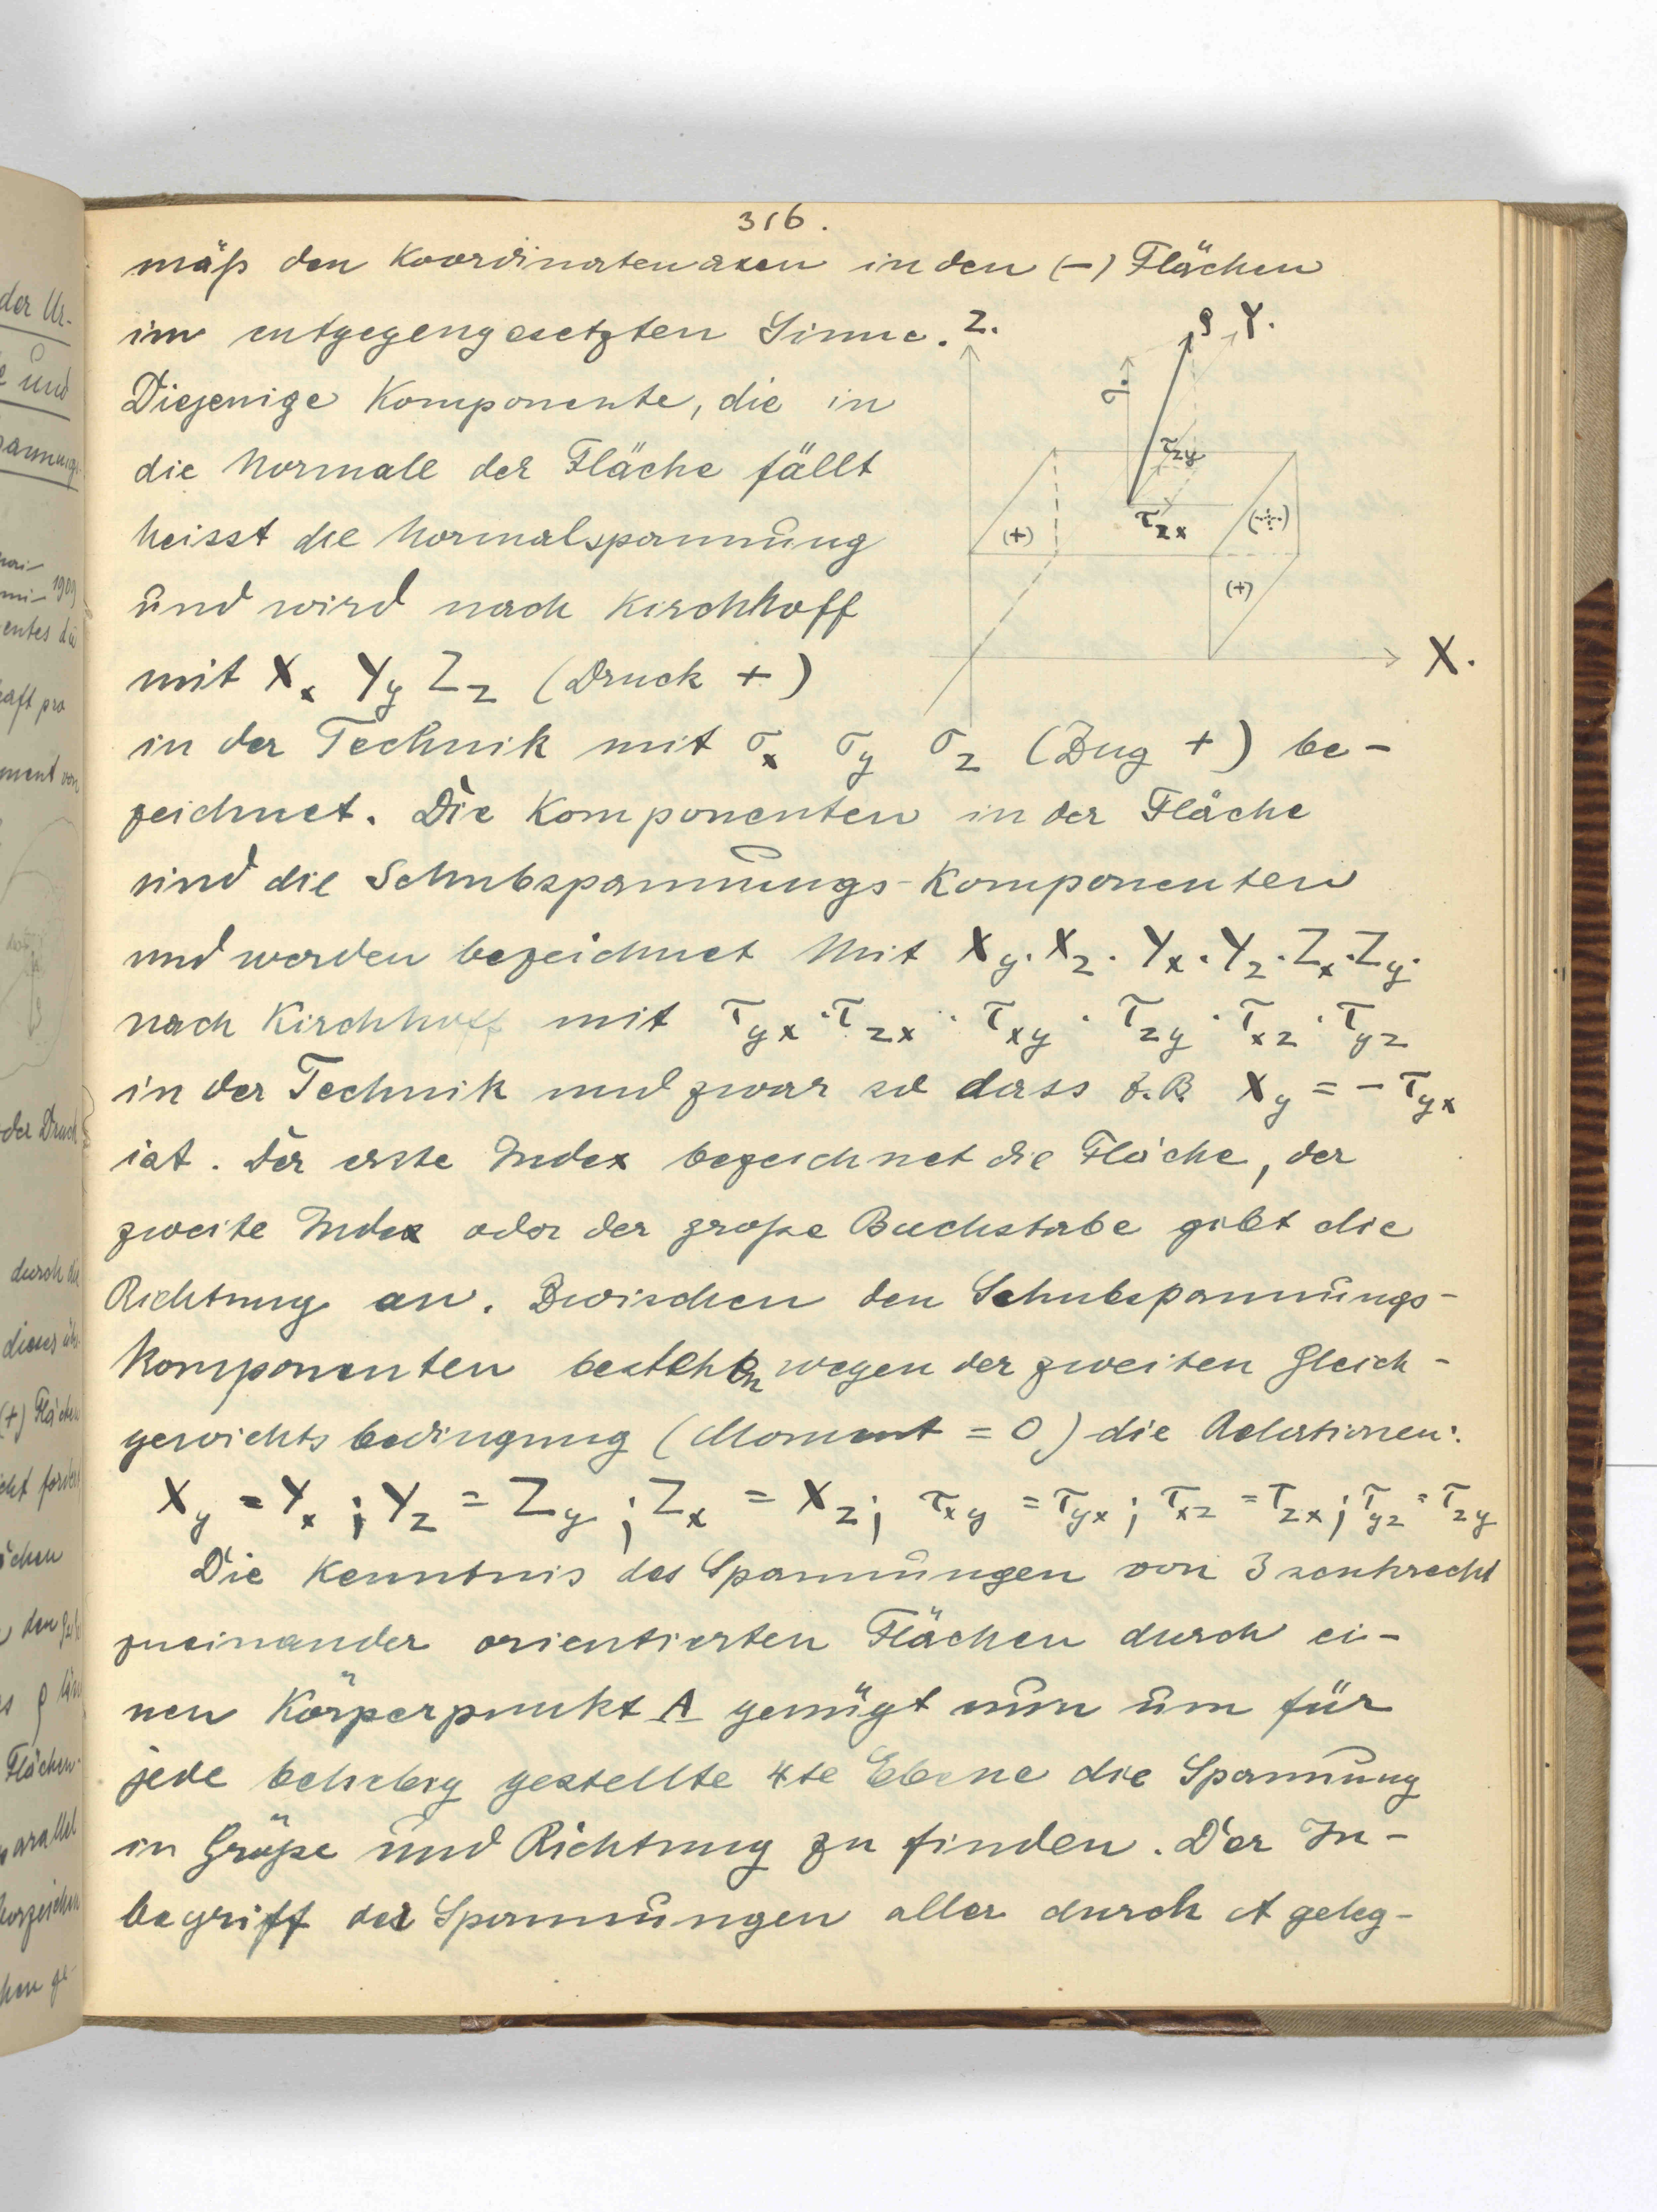 316.
mäß den Koordinatenaxen in den (-) Flächen
im entgegengesetzten Sinne.
Diejenige Komponente, die in
die Normale der Fläche fällt
heisst die Normalspannung
und wird nach Kirchhoff
mit X_x Y_y Z_z (Druck +)
in der Technik mit σ_x σ_y σ_z (Zug +) be-
zeichnet. Die Komponenten in der Fläche
sind die Schubspannungs-Komponenten
und werden bezeichnet mit X_y · X_z · Y_x · Y_z · Z_x · Z_y ·
nach Kirchhoff mit τ_yx · τ_zx · τ_xy · τ_zy · τ_xz · τ_yz
in der Technik und zwar so dass z.B. X_y = - τ_yx
ist. Der erste Index bezeichnet die Fläche, der
zweite Index oder der große Buchstabe gibt die
Richtung an. Zwischen den Schubspannungs-
Komponenten bestehen wegen der zweiten Gleich-
gewichtsbedingung (Moment = 0) die Relationen:
X_y = Y_x ; Y_z = Z_y ; Z_x = X_z ; τ_xy = τ_yx ; τ_xz = τ_zx ; τ_yz = τ_zy
Die Kenntnis des Spannungen von 3 senkrecht
zueinander orientierten Flächen durch ei-
nen Körperpunkt A genügt nun um für
jede beliebig gestellte 4te Ebene die Spannung
in Größe und Richtung zu finden. Der In-
begriff der Spannungen aller durch A geleg-
Z.
ρ Y.
σ
τ_zy
τ_zx
(+)
(-)
(+)
X.
der Ur-
und
1909
entes
kraft pro
ment von
der Druck
durch die
dieses
(+) Flächen
Flächen
parallel
Vorzeichen